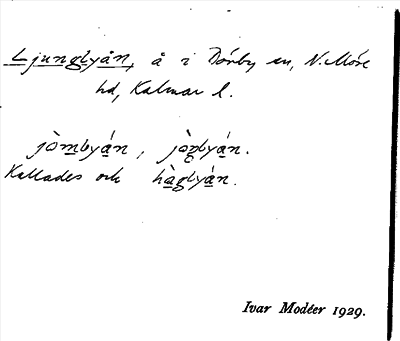 Ljunglyån, å i Dörby sn, N. Möre
hd, Kalmar l.
jòmbyán, jònglyán.
Kallades och hàglyán.
Ivar Modéer 1929.